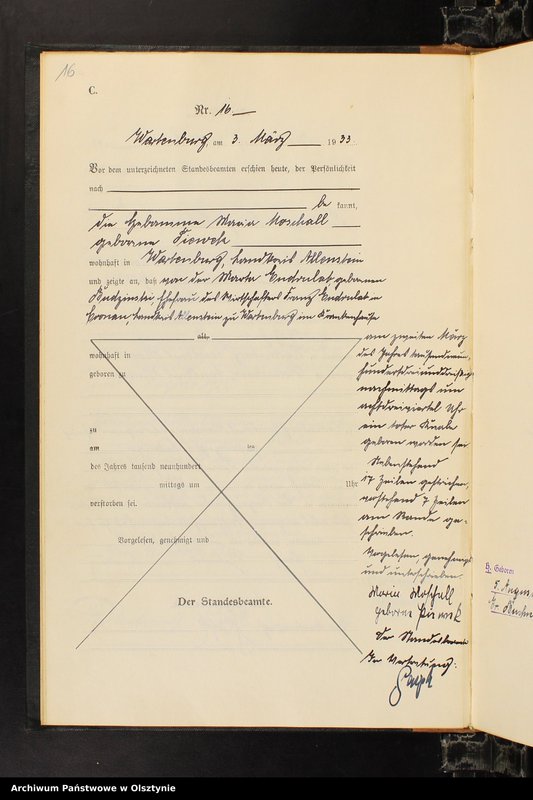 16
C.
Nr. 16.
Wartenburg am 3. März 1933.
Vor dem unterzeichneten Standesbeamten erschien heute, der Persönlichkeit
nach
be kannt,
die Hebamme Maria Moschall
geborene
wohnhaft in Wartenburg, Landkreis Allenstein
und zeigte an, daß von der Marta geborenen
Ehefrau des Franz
Landkreis Allenstein zu Wartenburg im Krankenhause
alt,
wohnhaft in
geboren zu
zu
am ten
des Jahres tausend neunhundert
mittags um Uhr
verstorben sei.
Vorgelesen, genehmigt und
Der Standesbeamte.
am zweiten März
des Jahres tausendneun-
hundertdreiunddreißig
nachmittags um
achtdreiviertel Uhr
ein toter Knabe
geboren worden sei
Nebenstehend
17 Zeilen gestrichen,
vorstehend 7 Zeilen
am Rande ge-
schrieben.
Vorgelesen, genehmigt
und unterschrieben.
Maria Moschall
geborene
Der Standesbeamte
In Vertretung:
Geboren
Archiwum Państwowe w Olsztynie